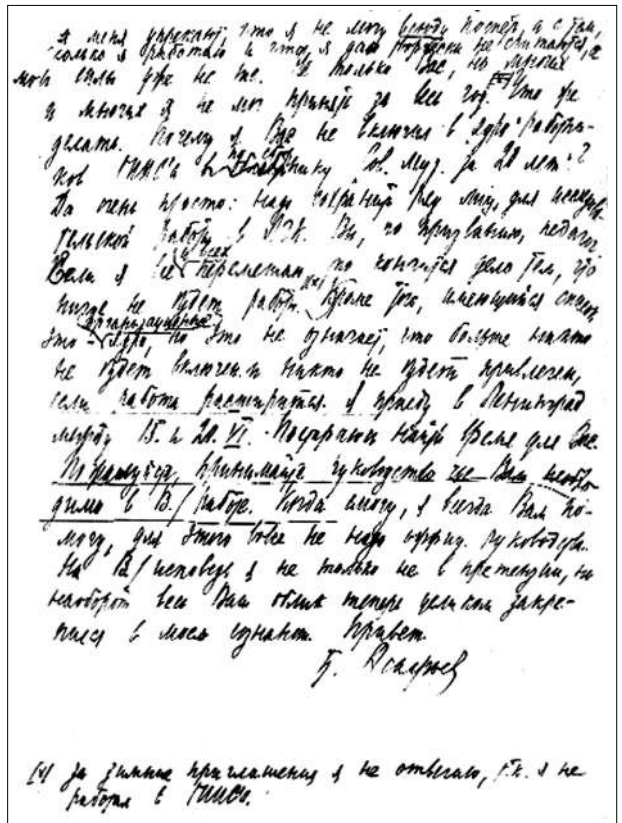 А меня упрекают, что я не могу всюду поспеть, а с тем,
сколько я работаю и что я даю не считаются, а
мои силы уже не те. Не только Вас, но многих
и многих я не мог принять за весь год. [x] Что же
делать. Почему я Вас не включил в "ядро" работни-
ков ГИИС'а по сборнику "Сов. муз. за 20 лет"?
Да очень просто: надо сохранить ряд лиц для
работы в ЛГК. Вы, по призванию, педагог
Если я всех и вся перемешаю, то кончится дело тем, что
нигде не будет работы. Кроме того, имеющийся список,
это – организационное ядро, но это не означает, что больше никто
не будет включен и никто не будет привлечен,
если работа расширится. Я приеду в Ленинград
между 15 и 20. VI. Постараюсь найти время для Вас.
Пожалуйста, принимайте руководство чье Вам необхо-
димо в В/ работе. Когда смогу, я всегда Вам по-
могу, для этого вовсе не надо официц. руководства.
На В/ исповедь я не только не в претензии, но
наоборот весь Ваш облик теперь целиком закре-
пился в моем сознании. Привет.
Б. Асафьев
[x] За зимние приглашения я не отвечаю, т.к. я не
работал в ГИИСе.